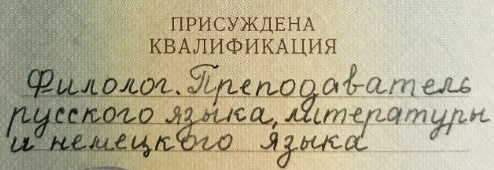 ПРИСУЖДЕНА
КВАЛИФИКАЦИЯ
Филолог. Преподаватель
русского языка, литературы
и немецкого языка